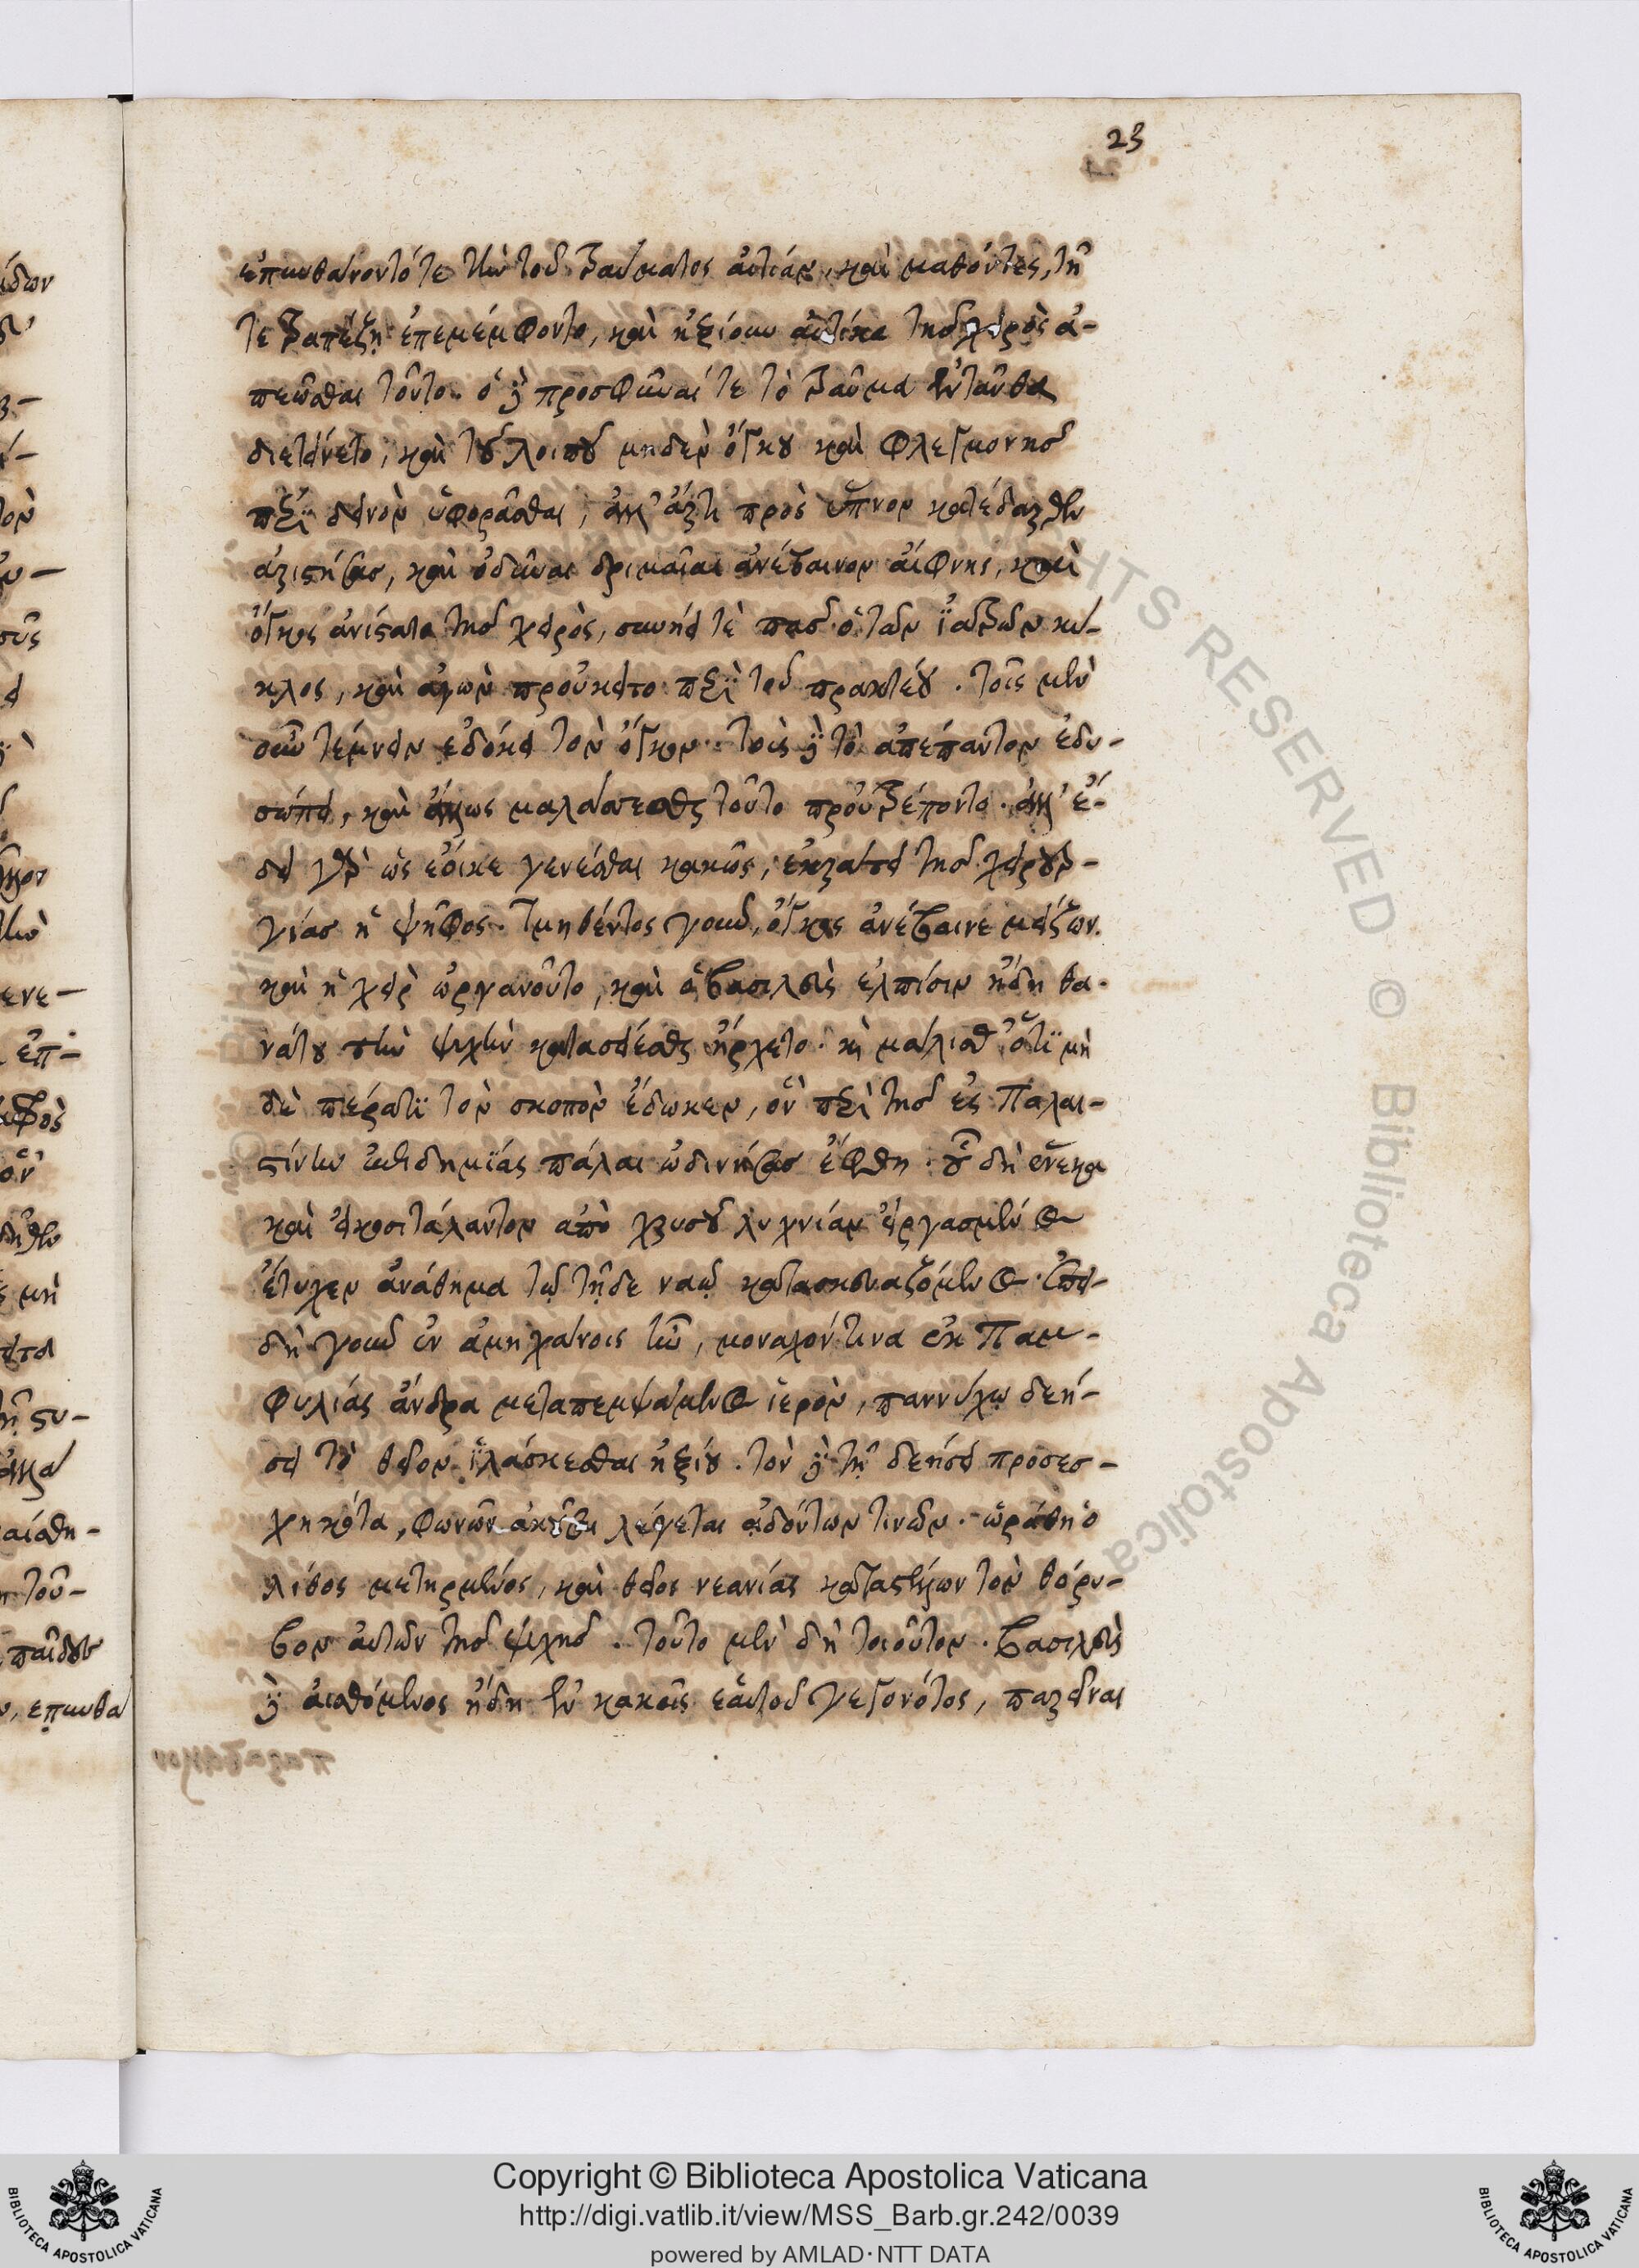 23
ἐπυνθάνοντό τε τὴν τοῦ τραύματος αἰτίαν, καὶ μαθόντες, τῇ
τε τραπέζῃ ἐπεμέμφοντο, καὶ ἠξίουν αὐτίκα τῆς χειρὸς ἀ-
πεῶσθαι τοῦτο. ὁ δὲ προσφῦναί τε τὸ τραῦμα ἐνταῦθα
διετείνετο, καὶ τοῦ λοιποῦ μηδὲν ὄγκου καὶ φλεγμονῆς
περὶ δεινὸν ὑφορᾶσθαι, ἀλλ' ἄρτι πρὸς ὕπνον κατέδαρθεν
ἀριστήσας, καὶ ὀδύναι δριμεῖαι ἀνέβαινον αἴφνης, καὶ
ὄγκος ἀνίστατο τῆς χειρὸς, συνῄει τὲ πᾶς ὁ τῶν ἰατρῶν κύ-
κλος, καὶ ἀγὼν προὔκειτο περὶ τοῦ πρακτέου. τοῖς μὲν
οὖν τέμνειν ἐδόκει τὸν ὄγκον. τοὺς δὲ τὸ ἀπέπαντον ἐδυ-
σώπει, καὶ ἄλλως μαλάσσεσθαι τοῦτο προὐτρέποντο. ἀλλ' ἔ-
δει γὰρ ὡς ἔοικε γενέσθαι κακῶς, ἐκράτει τῆς χειρουρ-
γίας ἡ ψῆφος. τμηθέντος γοῦν, ὄγκος ἀνέβαινε μείζων.
καὶ ἡ χεὶρ ὠργανοῦτο, καὶ ὁ βασιλεὺς ἐλπίσιν ἤδη θα-
νάτου τὴν ψυχὴν κατασείεσθαι ἤρχετο. καὶ μάλισθ' ὅτι μὴ
δὲ πέρατι τὸν σκοπὸν ἔδωκεν, ὃν περὶ τῆς ἐς Παλαι-
στίνην ἐπιδημίας πάλαι ὠδινήσας ἔφθη. οὗ δὴ ἕνεκα
καὶ εἰκοσιτάλαντον ἀπὸ χρυσοῦ λυχνίαν εἰργασμένος
ἔτυχεν ἀνάθημα τῷ τῇδε ναῷ κατασκευαζόμενος. ἐπει-
δὴ γοῦν ἐν ἀμηχάνοις ἦν, μοναχόν τινα ἐκ Παμ-
φυλίας ἄνδρα μεταπεμψάμενος ἱερὸν, παννύχῳ δεή-
σει τὸ θεῖον ἱλάσκεσθαι ἠξίου. τὸν δὲ τῇ δεήσει προσεσ-
χηκότα, φωνῶν ἀκοῦσαι λέγεται ᾀδόντων τινῶν. ὡράθη ὁ
λίθος μετηρμένος, καὶ θεῖος νεανίας καταστέλλων τὸν θόρυ-
βον αὐτῶν τῆς ψυχῆς. τοῦτο μὲν δὴ τοιοῦτον. βασιλεὺς
δὲ αἰσθόμενος ἤδη ἐν κακοῖς ἑαυτοῦ γεγονότος, παρεῖναι